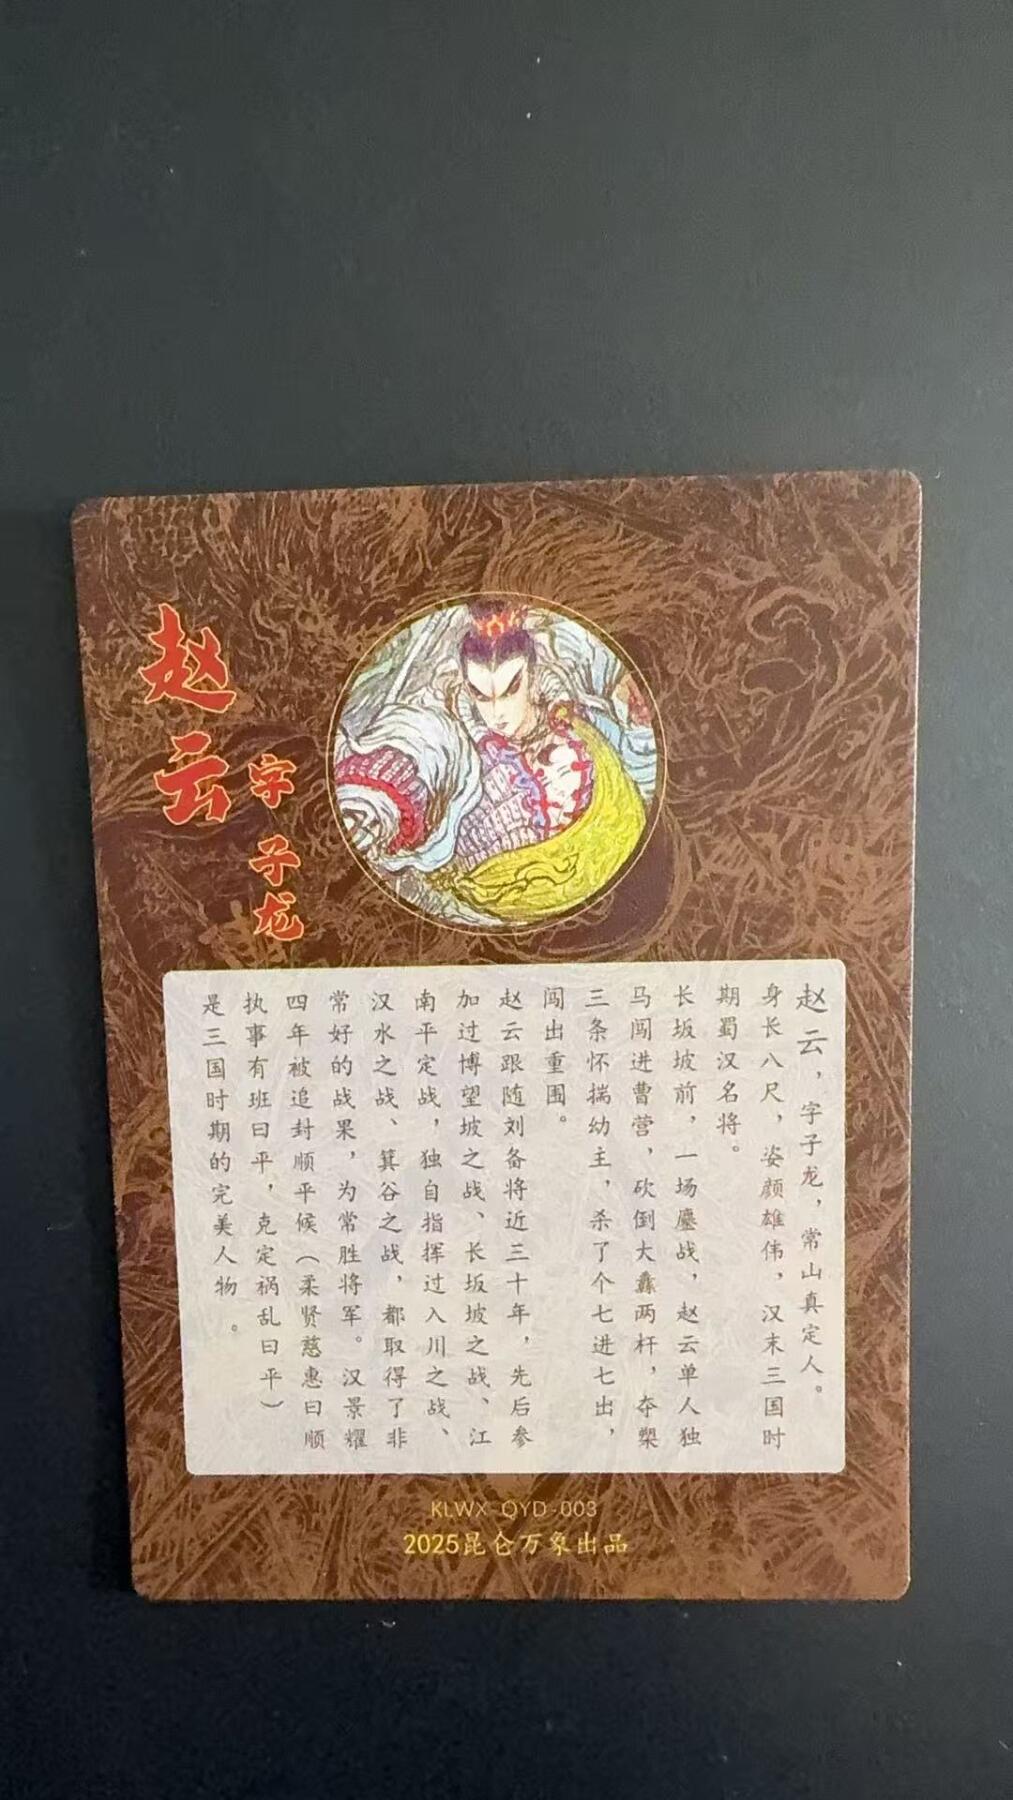 赵云
字子龙
赵云，字子龙，常山真定人。
身长八尺，姿颜雄伟，汉末三国时
期蜀汉名将。
长坂坡前，一场鏖战，赵云单人独
马闯进曹营，砍倒大纛两杆，夺槊
三条怀揣幼主，杀了个七进七出，
闯出重围。
赵云跟随刘备将近三十年，先后参
加过博望坡之战、长坂坡之战、江
南平定战，独自指挥过入川之战、
汉水之战、箕谷之战，都取得了非
常好的战果，为常胜将军。汉景耀
四年被追封顺平候（柔贤慈惠曰顺
执事有班曰平，克定祸乱曰平）
是三国时期的完美人物。
KLWX-QYD-003
2025昆仑万象出品